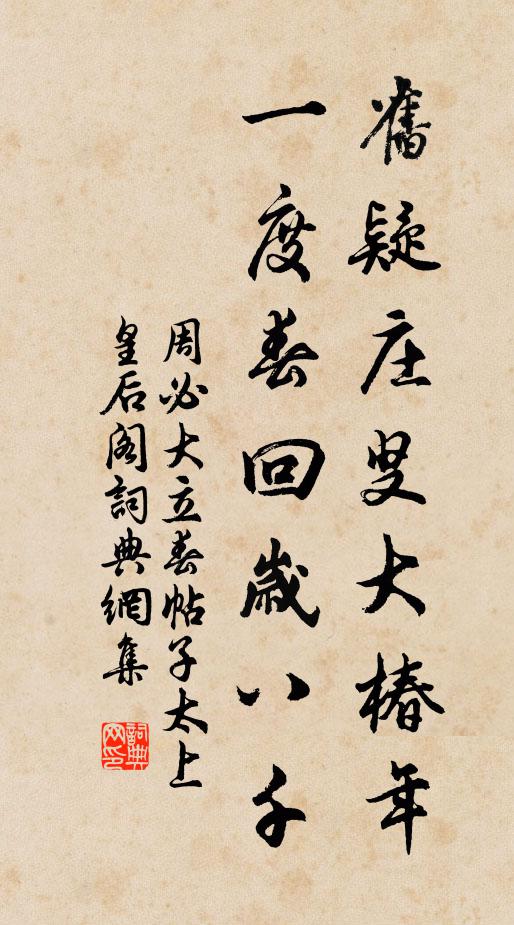 舊疑庄叟大椿年
一度春回歲八千
周必大立春帖子太上
皇后阁詞典網集
詞典网印